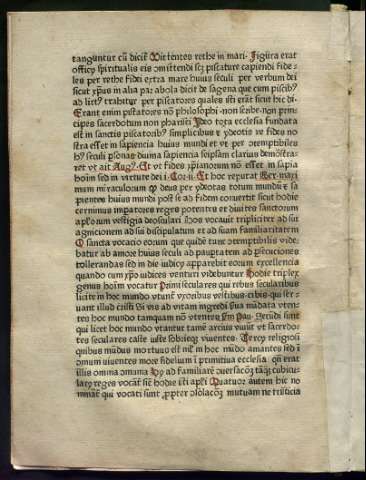 tangūntur cū dicit̄ Mittentes rethe in mari. Figūra erat
officÿ spiritualis eis cōmittendi scꝫ piscature capiendi fide-
les per rethe fidei extra mare huius seculi per verbum dei
sicut xp̄us in alia parabola dicit de sagena que cum piscibꝰ
ad litꝰ trahitur per piscatores quales isti erāt sicut hic dr̄
Erant enim pistatores nō philosophi non scribe non prin-
cipes sacerdotum non pharisei Ideo tota ecclesia fundata
est in sanctis piscatoribꝰ simplicibus et ydeotis ne fides no
stra esset in sapientia huius mundi et vt per contemptibiles
hꝰ seculi psonas diuina sapiencia seipsam clarius demōstra-
ret vt ait Augꝰ. Et vt fides xp̄ianorum nō esset in sapia
hoīm sed in virtute dei i Cor ii. Et hoc reputat Ber. maxi
mum miraculorum deus per ydeotas totum mundū et sa
pientes huius mundi post se ad fidem conuertit sicut hodie
cernimus impatores reges potentes et diuites sanctorum
apl'orum vestigia deosculari Hos vocauit tripliciter ad sui
agnicionem ad sui discipulatum et ad suam familiaritatem
O sancta vocacio eorum que quidē tunc cōtemptibilis vide
batur ab amore huius seculi ad paupertatem ad psecuciones
tollerandas sed in die iudicÿ apparebit eorum excellencia
quando cum xp̄o iudices venturi videbuntur Hodie triplex
genus hoīm vocatur Primi seculares qui rebus secularibus
licite in hoc mundo vtunt̄ vxoribus vestibus cibis qui ser-
uant illud cristi Si vis ad vitam ingredi sua mādata viuen-
tes hoc mundo tamquam nō vtentes Pm̄ Pau. Secūdi sunt
qui licet hoc mundo vtantur tamē arcius viuūt vt sacerdo
tes seculares caste iuste sobrieqꝫ viuentes. Tercÿ religiosi
quibus mūdus mortuus est nil' in hoc mūdo amantes sed ī
omnium viuentes more fidelium ī primitiua ecclesia. qn̄ erat
illis omnia cōmunia Hÿ ad familiarē cōuersacōem tāqꝫ cubicu-
larÿ reges vocāt̄ sic̄ hodie isti apl'i Quatuor autem hic no
minat̄ qui vocati sunt propter cōsolacōem mutuam ne tristicia